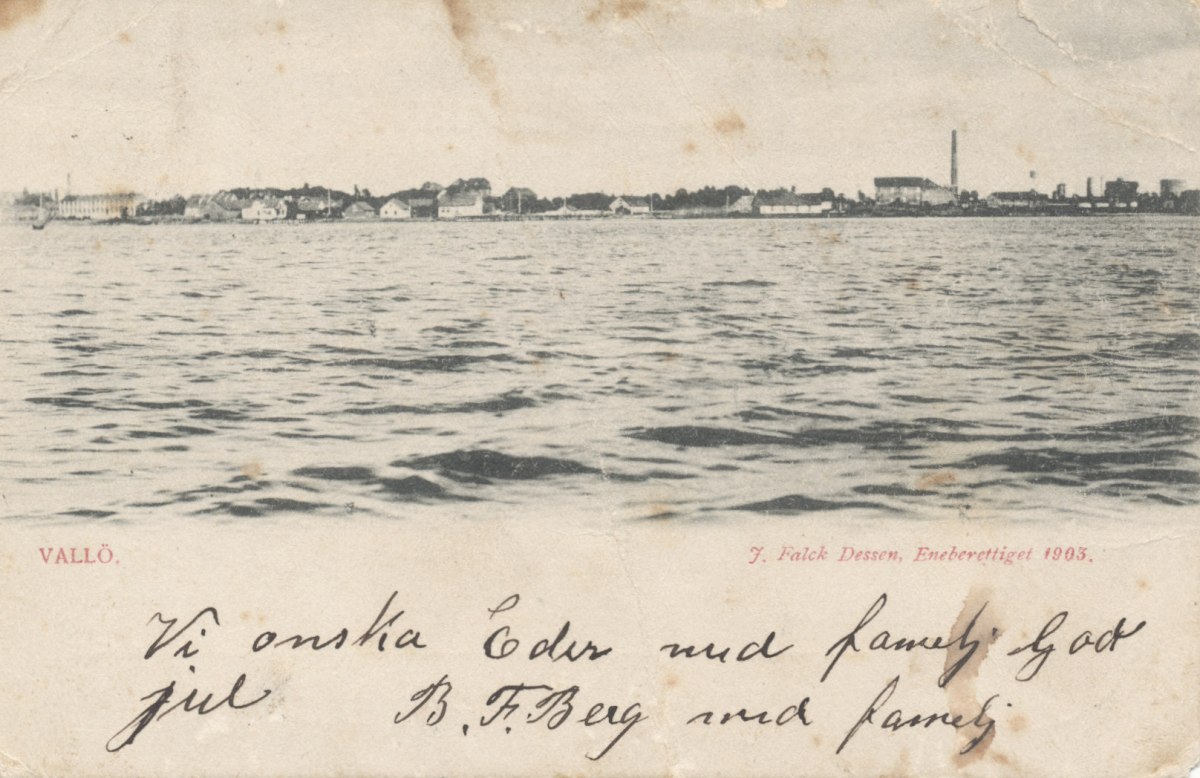 VALLÖ.
J. Falck Dessen, Eneberettiget 1903.
Vi onska Eder med famelj God
jul B. F. Berg med famelj